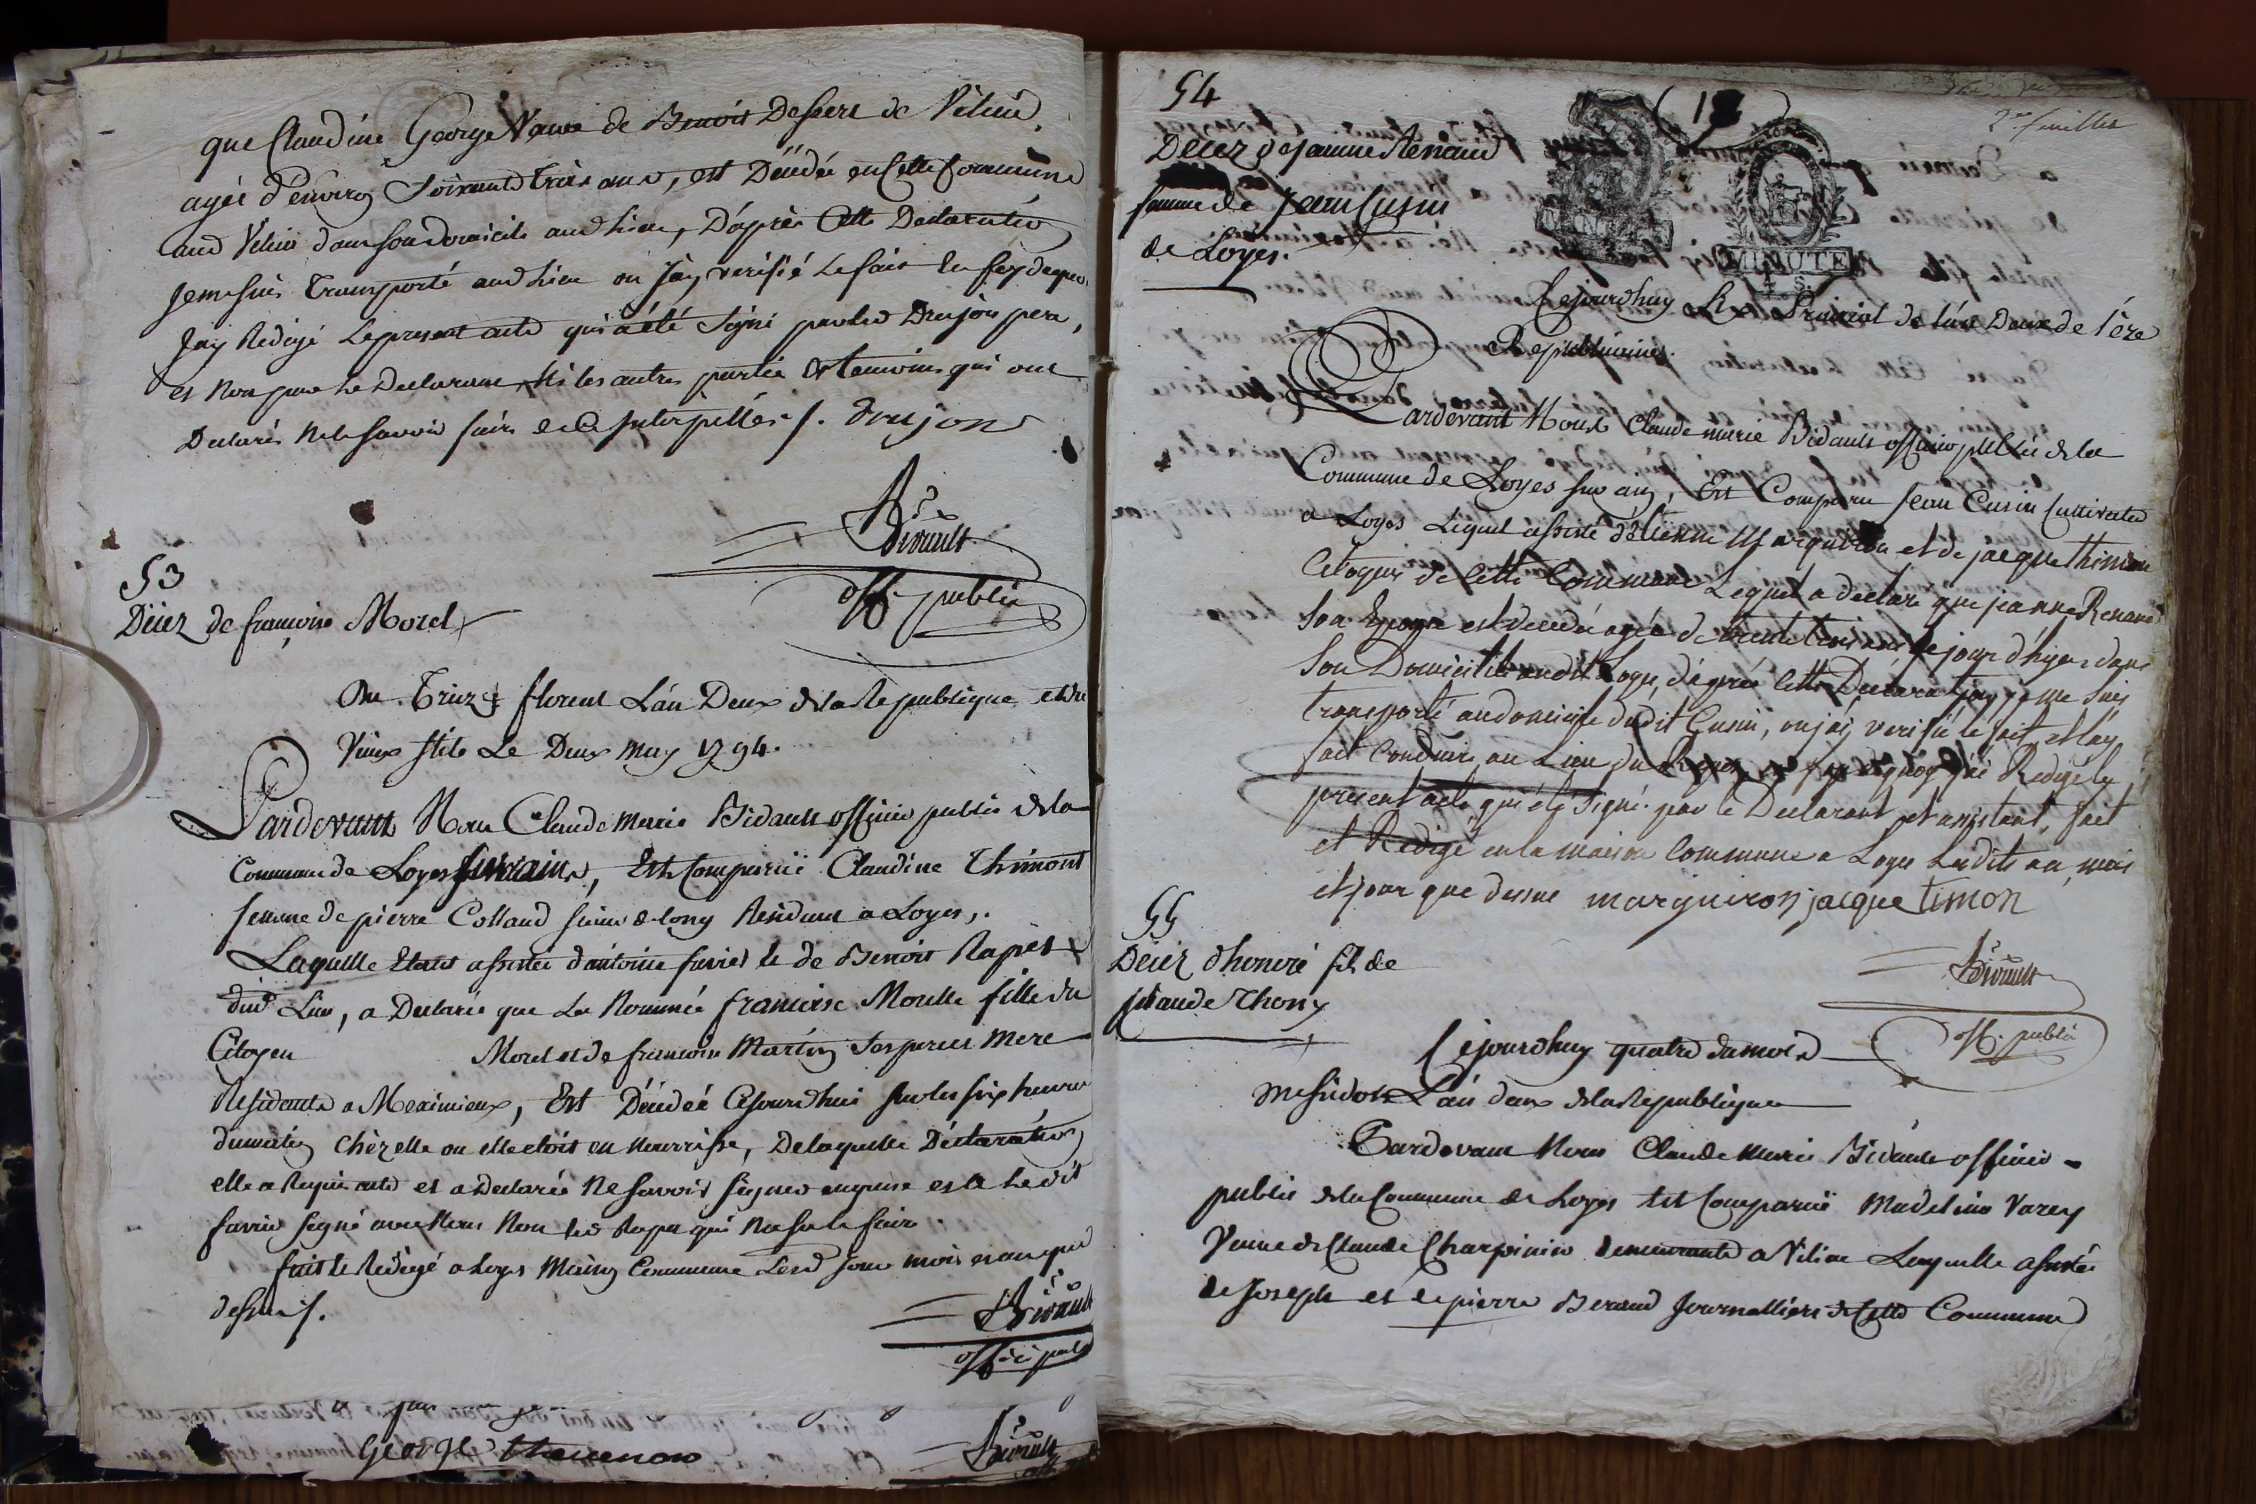 que Claudine George Veuve de Benoit Despere de
agée d'environ Soixante trois ans, est Décédée en Cette Commune
aud Velieu dans son domicile aud lieu, D'après Cette Declaration
Je me suis transporté aud lieu ou J'ay verifié le fait En foy de quoi
J'ay Redigé le present acte qui a été Signé par led Drujon pere,
et Non par le Declarant, Ni les autres partie et temoins qui ont
Declarés Ne le Savoir faire de ce Interpellés ∫. Drujon
Bidault
off. public
53
Décez de françoise Morel
Du Treize floreal L'an Deux de la Republique et du
Vieux stile Le Deux may 1794.
Pardevant Nous Claude Marie Bidault officier public de la
Commune de Loyes Est Comparuë Claudine Thimont
femme de pierre Colland Résidant a Loyes,.
Laquelle Etant assistée d'antoine favier & de Benoit Rapet
dud Lieu, a Declaré que La Nommée francoise Morelle fille du
Citoyen Morel et de francoise Martin Ses pere et Mere
Residents a Meximieux, Est Décédeé Cejourdhui Sur les six heures
du matin Chèz elle ou elle etoit en Nourrisse, De laquelle Déclaration
elle a Requis acte et a Declarée Ne Savoir Signer et le dit
favier Signé avec Nous Non led Rapet qui Na Su le faire.
fait & Redigé a Loyes Maison Commune Lesd jour mois et an que
dessus ∫.
Bidault
offici publ
George thevenon
Bidault
54
Décez de Jeanne Renaud
femme de Jean Cusin
de Loyes.
2me feuillet
MINUTE
MINUTE
4 S.
Cejourdhuy Prairial de L'an Deux de l'ère
Republicaine.
Pardevant Nous Claude marie Bidault officier public de la
Commune de Loyes Sur ain, Est Comparu Jean Cusin Cultivateur
a Loyes Lequel assisté d'Etienne Marguiron et de jacque thimon
Citoyens de Cette Commune Lequel a declaré que jeanne Renaud
Son Epouse est decedée agée de trente trois ans le jour d'hyer dans
Son Domicile audit Loyes, d'après Cette Déclaration, je me suis
transporté au domicile dudit Cusin, ou jai verifié le fait et l'ay
fait Conduire au Lieu du Repos, en foy de quoy j'ai Redigé le
present acte qui a été Signé par le Declarant et assistant, fait
et Redigé en la maison Commune a Loyes Lesdits an, mois
et jour que dessus marguiron jacque timon
Bidault
off. public
55
Décez d'honoré fils de
Claude Thony
Cejourdhuy quatre du mois
messidor L'an deux de la Republique
Pardevant Nous Claude Marie Bidault officier
public de la Commune de Loyes Est Comparuë Madelaine Varey
Veuve de Claude Charpinier demeurante a Velieu Laquelle assistée
de Joseph et de pierre Beraud Journalliers de Cette Commune